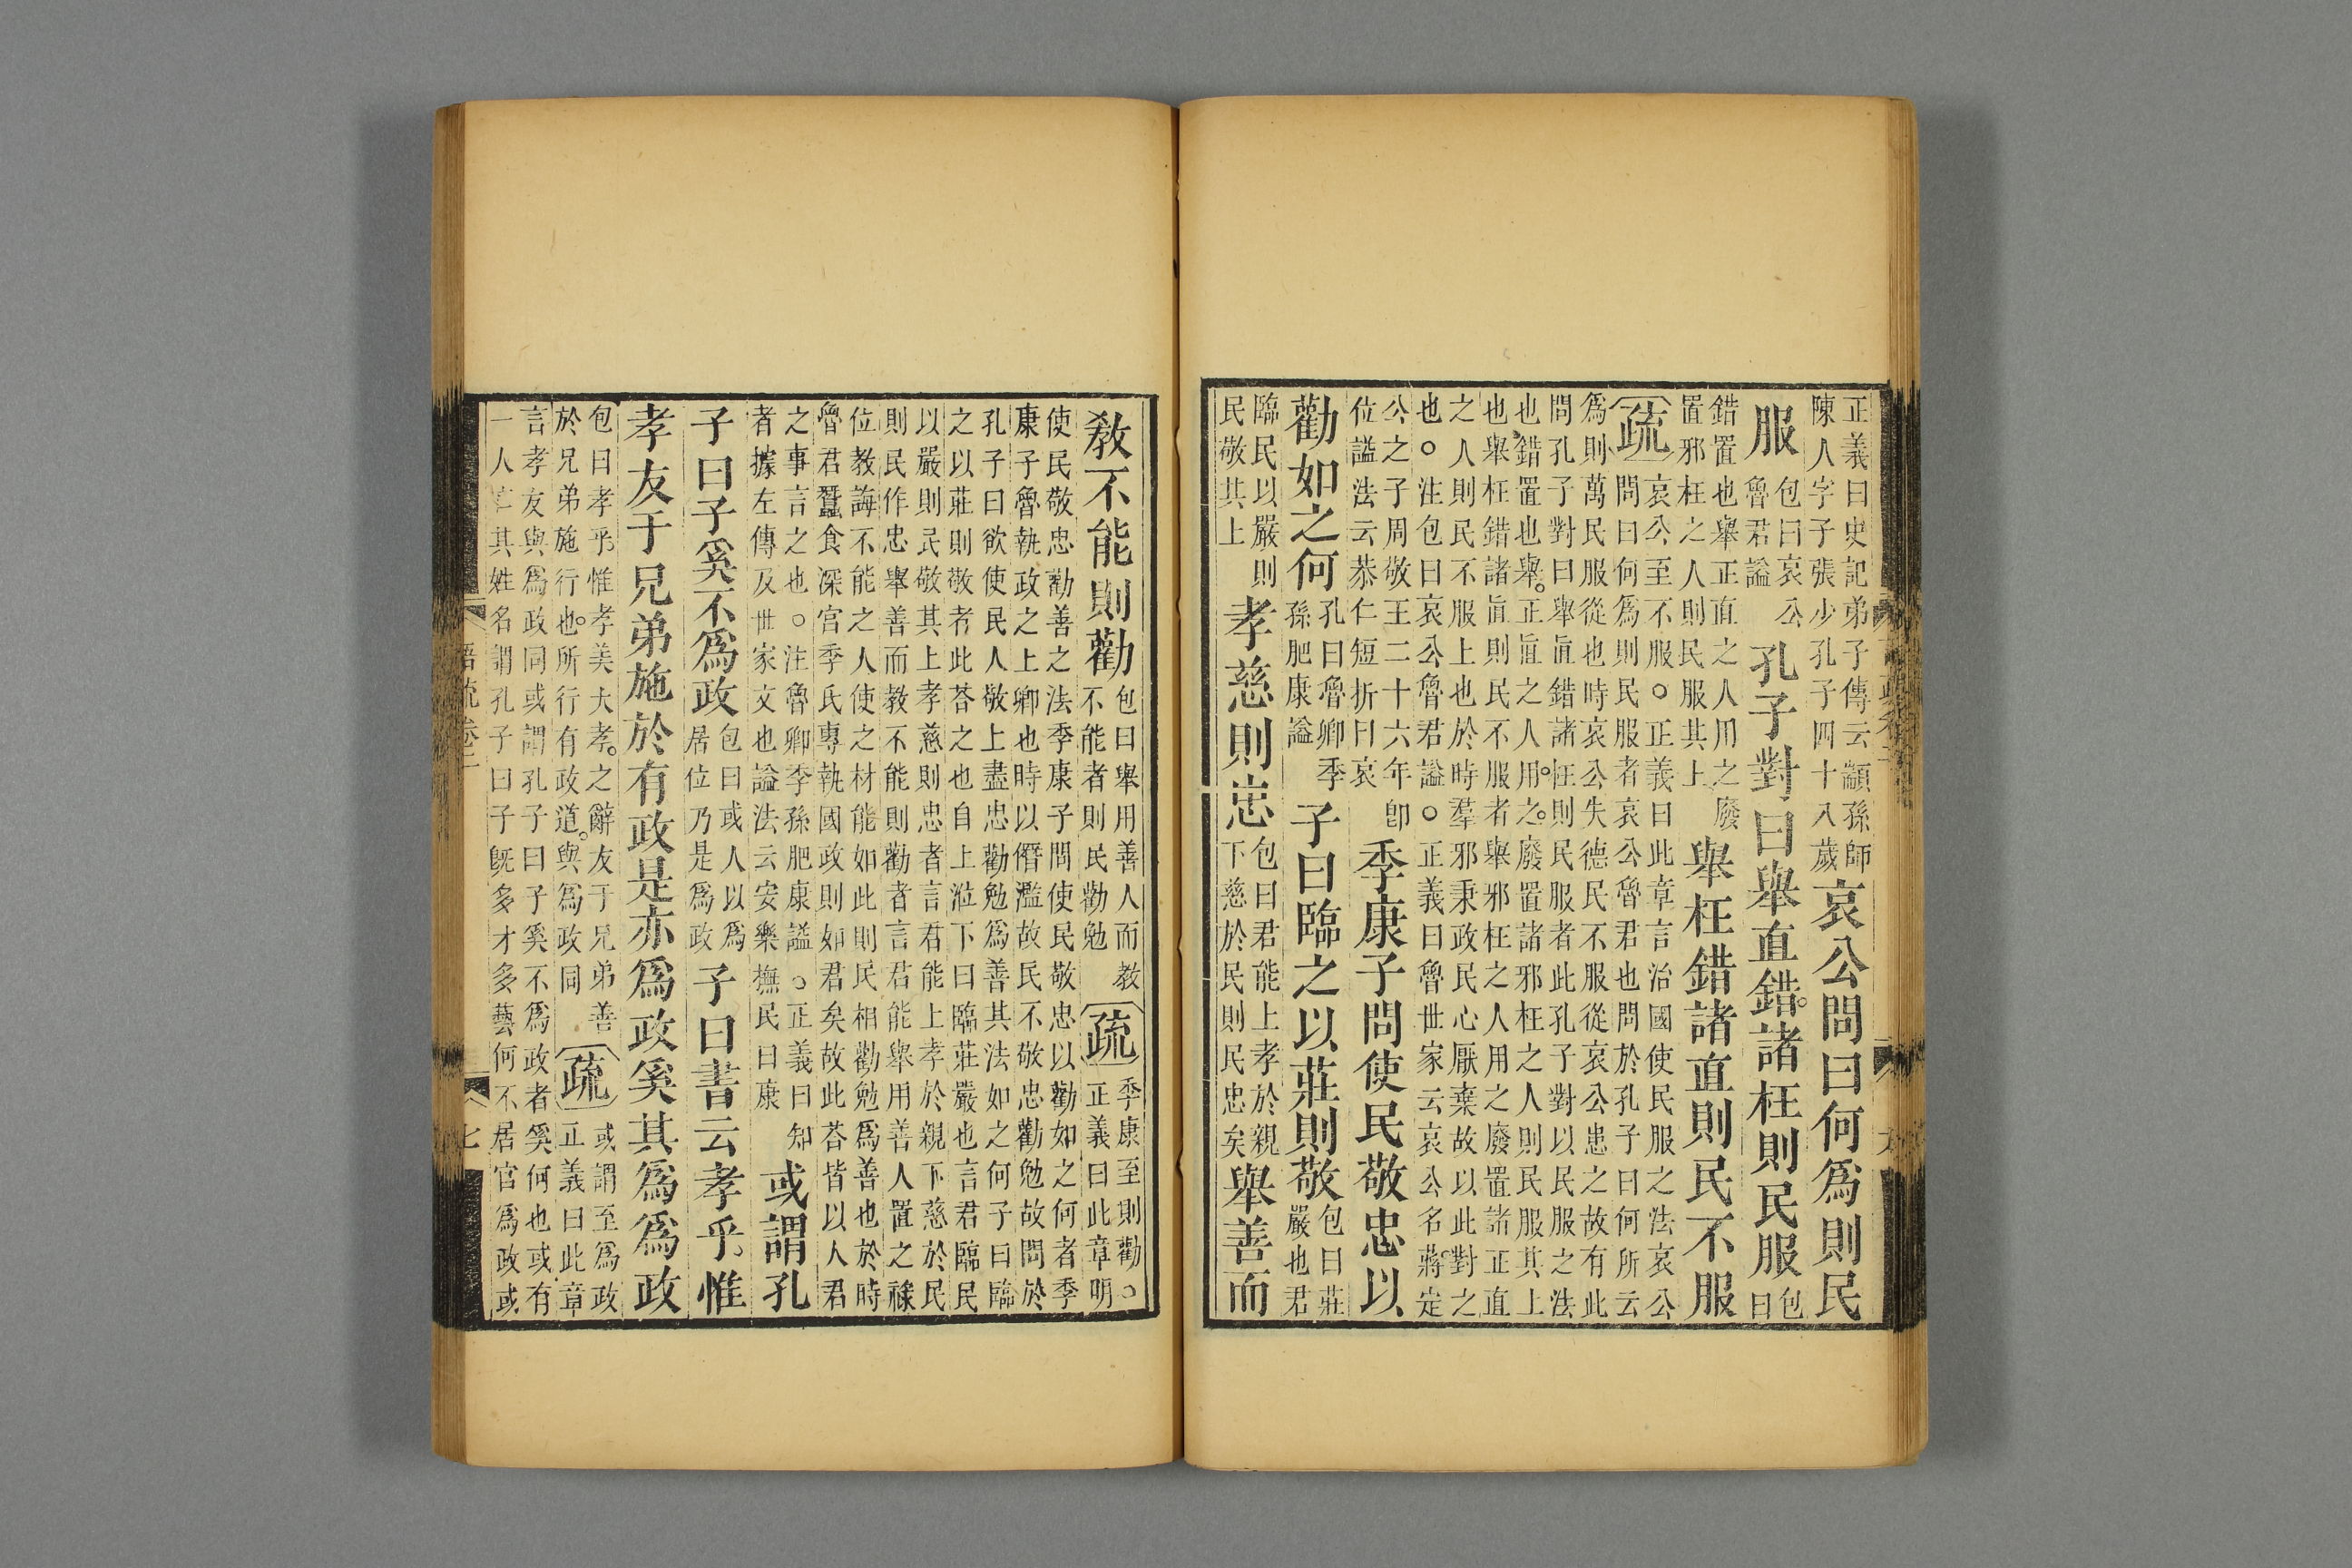 正義曰史記弟子傳云顓孫師
陳人字子張少孔子四十八歲
哀公問曰何爲則民
服
包曰哀公
魯君諡
孔子對曰舉直錯諸枉則民服
包
曰
錯置也舉正直之人用之廢
置邪枉之人則民服其上
舉枉錯諸直則民不服
疏
哀公至不服○正義曰此章言治國使民服之法哀公
問曰何爲則民服者哀公魯君也問於孔子曰何所云
爲則萬民服從也時哀公失德民不服從哀公患之故有此
問孔子對曰舉直錯諸枉則民服者此孔子對以民服之法
也錯置也舉正直之人用之廢置諸邪枉之人則民服其上
也舉枉錯諸直則民不服者舉邪枉之人用之廢置諸正直
之人則民不服上也於時羣邪秉政民心厭棄故以此對之
也○注包曰哀公魯君諡○正義曰魯世家云哀公名蔣定
公之子周敬王二十六年卽
位諡法云恭仁短折曰哀
季康子問使民敬忠以
勸如之何
孔曰魯卿季
孫肥康諡
子曰臨之以莊則敬
包曰莊
嚴也君
臨民以嚴則
民敬其上
孝慈則忠
包曰君能上孝於親
下慈於民則民忠矣
舉善而
教不能則勸
包曰舉用善人而教
不能者則民勸勉
疏
季康至則勸○
正義曰此章明
使民敬忠勸善之法季康子問使民敬忠以勸如之何者季
康子魯執政之上卿也時以僭濫故民不敬忠勸勉故問於
孔子曰欲使民人敬上盡忠勸勉爲善其法如之何子曰臨
之以莊則敬者此荅之也自上涖下曰臨莊嚴也言君臨民
以嚴則民敬其上孝慈則忠者言君能上孝於親下慈於民
則民作忠舉善而教不能則勸者言君能舉用善人置之祿
位教誨不能之人使之材能如此則民相勸勉爲善也於時
魯君蠶食深宮季氏專執國政則如君矣故此荅皆以人君
之事言之也○注魯卿季孫肥康諡○正義曰知
者據左傳及世家文也諡法云安樂撫民曰康
或謂孔
子曰子奚不爲政
包曰或人以爲
居位乃是爲政
子曰書云孝乎惟
孝友于兄弟施於有政是亦爲政奚其爲爲政
包曰孝乎惟孝美大孝之辭友于兄弟善
於兄弟施行也所行有政道與爲政同
疏
或謂至爲政
正義曰此章
言孝友與爲政同或謂孔子曰子奚不爲政者奚何也或有
一人亡其姓名謂孔子曰子旣多才多藝何不居官爲政或